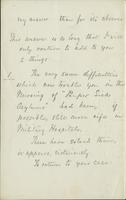 my answer than for its absence
This answer is so long that I will
only venture to add to you
2 things
1. The very same difficulties
which now trouble you in the
Nursing of "Paper Sick
Asylums" had been, if
possible, still more rife in
Military Hospitals.
These have solved them,
it appears, victoriously.
To return to your case: